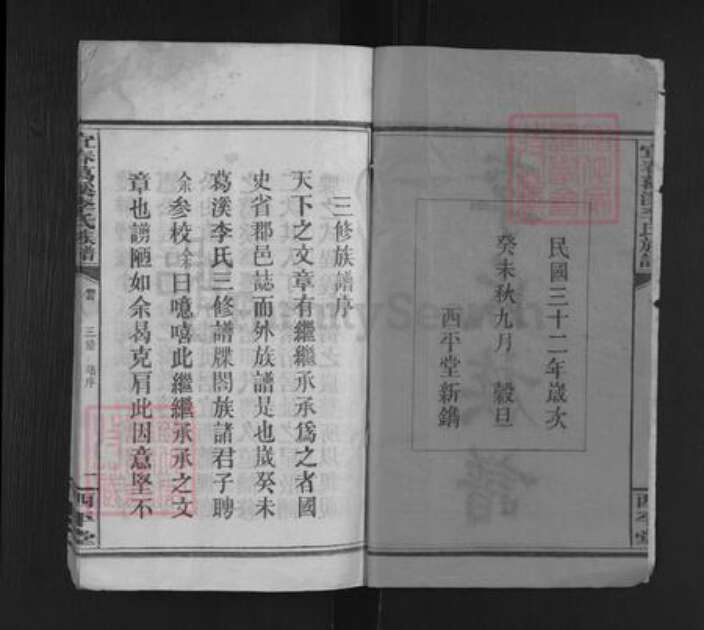 民國三十二年歲次
癸未秋九月 穀旦
西平堂新鐫
三修族譜序
天下之文章有繼繼承承為之者國
史省郡邑誌而外族譜是也歲癸未
葛溪李氏三修譜牒閤族諸君子聘
余參校余曰噫嘻此繼繼承承之文
章也譾陋如余曷克肩此因意堅不
宜春葛溪李氏族譜
三修 譜序
一
西平堂
宜春葛溪李氏族譜
西平堂